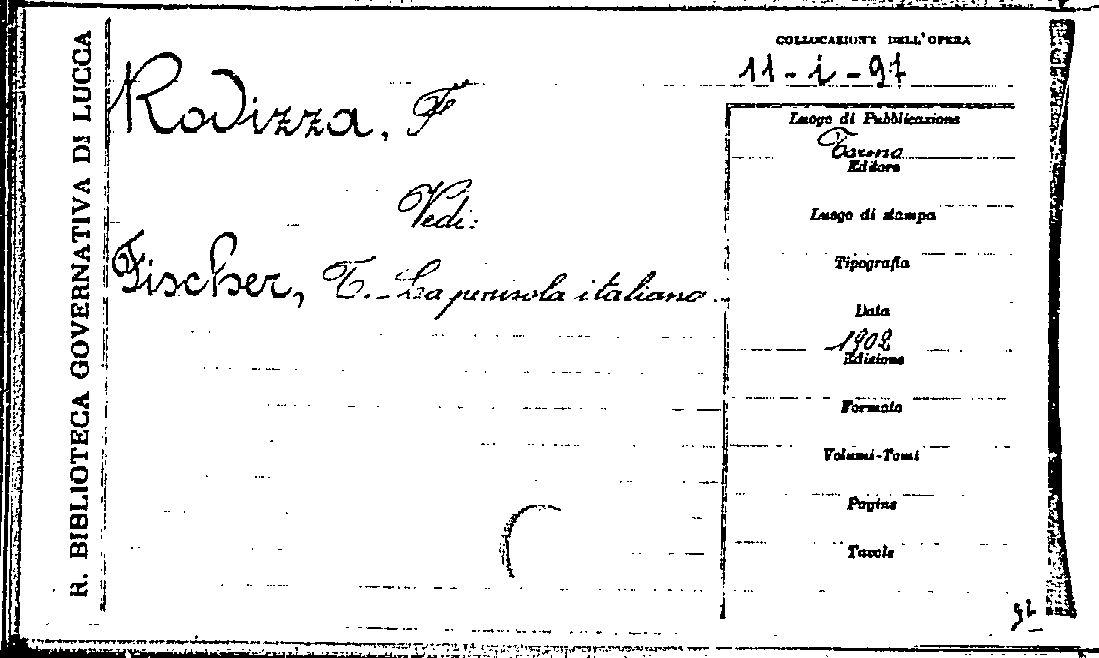 R. BIBLIOTECA GOVERNATIVA DI LUCCA
COLLOCAZIONE DELL'OPERA
11-i-97
Rodizza, F
Vedi:
Fischer, T. - La penisola italiana.
Luogo di Pubblicazione
Torino
Editore
Luogo di stampa
Tipografia
Data
1902
Edizione
Formato
Volumi-Tomi
Pagine
Tavole